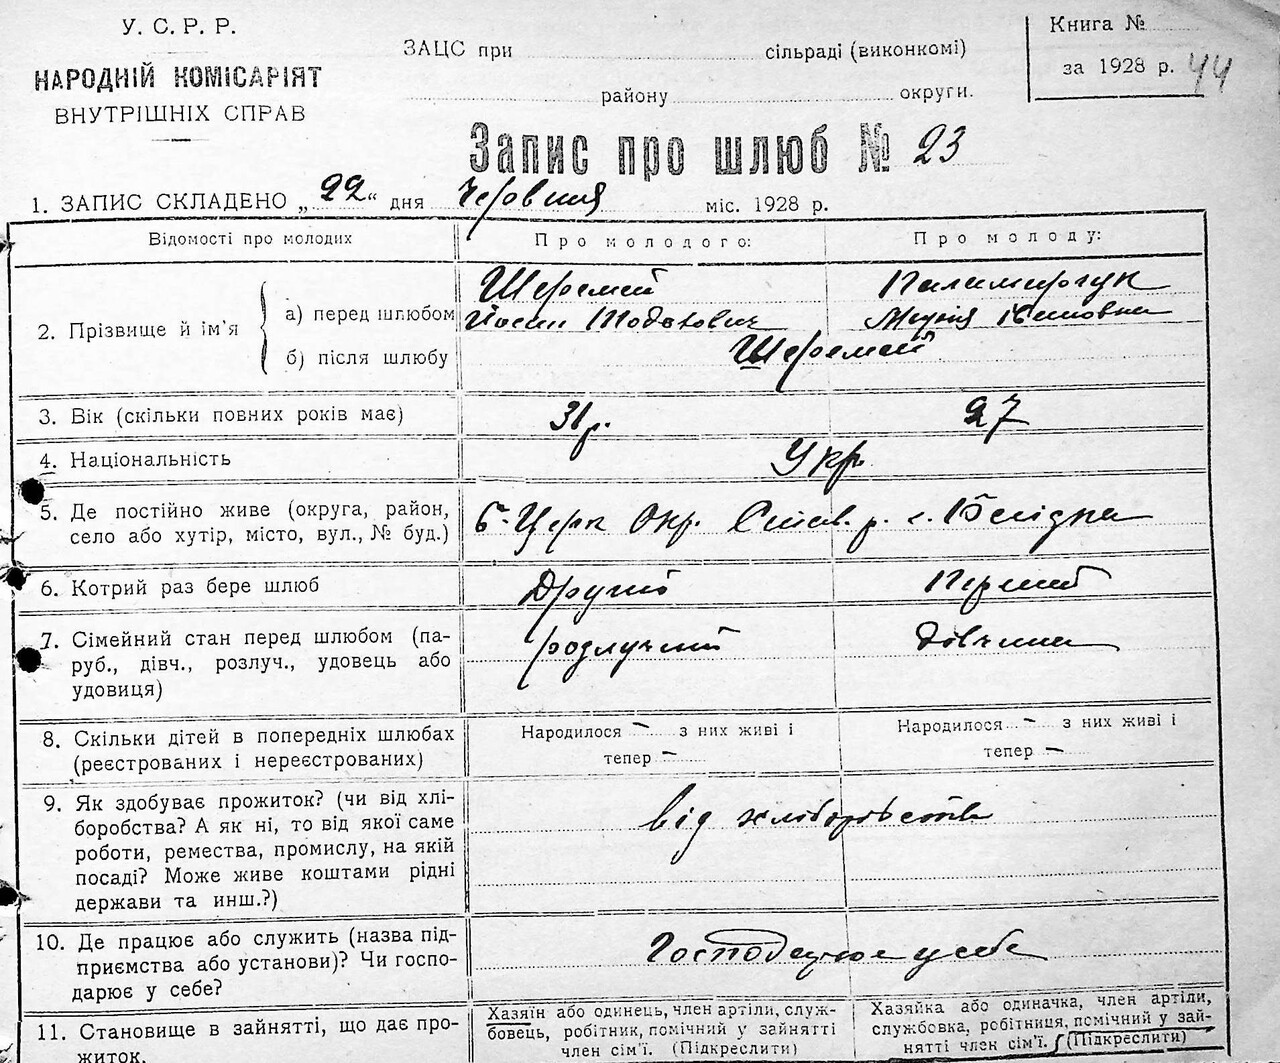 У. С. Р. Р.
НАРОДНІЙ КОМІСАРІЯТ
ВНУТРІШНІХ СПРАВ
ЗАЦС при сільраді (виконкомі)
району округи.
Книга №
за 1928 р. 44
Запис про шлюб № 23
1. ЗАПИС СКЛАДЕНО „22“ дня Червния міс. 1928 р.
Відомості про молодих
Про молодого:
Про молоду:
2. Прізвище й ім'я
а) перед шлюбом
б) після шлюбу
Шеремей
Йосип
Шеремей
3. Вік (скільки повних років має)
31 р.
27
4. Національність
Укр.
5. Де постійно живе (округа, район,
село або хутір, місто, вул., № буд.)
б-Церк Окр. р. с.
6. Котрий раз бере шлюб
Другий
Перший
7. Сімейний стан перед шлюбом (па-
руб., дівч., розлуч., удовець або
удовиця)
розлучений
дівчина
8. Скільки дітей в попередніх шлюбах
(реєстрованих і нереєстрованих)
Народилося – з них живі і
тепер –
Народилося – з них живі і
тепер –
9. Як здобуває прожиток? (чи від хлі-
боробства? А як ні, то від якої саме
роботи, ремества, промислу, на якій
посаді? Може живе коштами рідні
держави та инш.?)
від хліборобства
10. Де працює або служить (назва під-
приємства або установи)? Чи госпо-
дарює у себе?
Господарює у себе
11. Становище в зайнятті, що дає про-
житок.
Хазяїн або одинець, член артілі, служ-
бовець, робітник, помічний у зайнятті
член сім'ї. (Підкреслити)
Хазяйка або одиначка, член артіли,
службовка, робітниця, помічний у зай-
нятті член сім'ї. (Підкреслити)